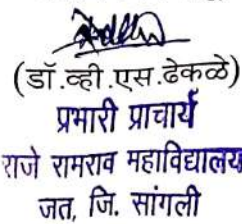 (डॉ.व्ही.एस.ढेकळे)
प्रभारी प्राचार्य
राजे रामराव महाविद्यालय
जत, जि. सांगली